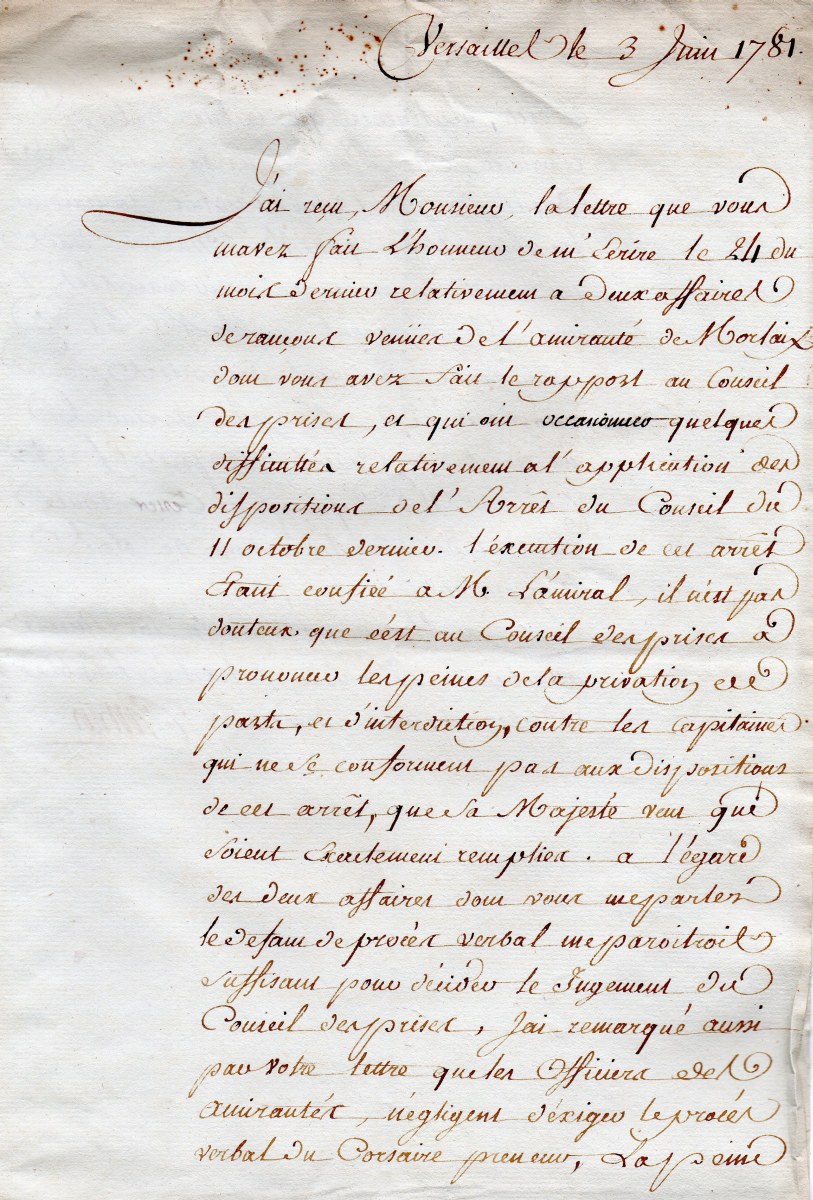 Versailles le 3 Juin 1781.
J'ai reçu, Monsieur, la lettre que vous
m'avez fait l'honneur de m'Ecrire le 24 du
mois dernier relativement a deux affaires
de rançons venües de l'amirauté de Morlaix
dont vous avez fait le rapport au Conseil
des prises, et qui ont occasionnés quelques
difficultés relativement a l'application des
dispositions de l'Arrêt du Conseil du
11 octobre dernier. l'éxécution de cet arrêt
Etant confiéé a M. L'amiral, il n'est pas
douteux que c'ést au Conseil des prises a
prononcer les peines de la privation de
parts, et d'interdiction, contre les capitaines
qui ne Se conforment pas aux dispositions
de cet arrêt, que Sa Majesté veut que
Soient Exactement remplies. a l'égard
des deux affaires dont vous me parlez
le defaut de procés verbal me paroitroit
suffisant pour décider le Jugement du
Conseil des prises, J'ai remarqué aussi
par votre lettre que les Officiers des
amirautés, négligent d'éxiger le procés
verbal du Corsaire preneur, La peine